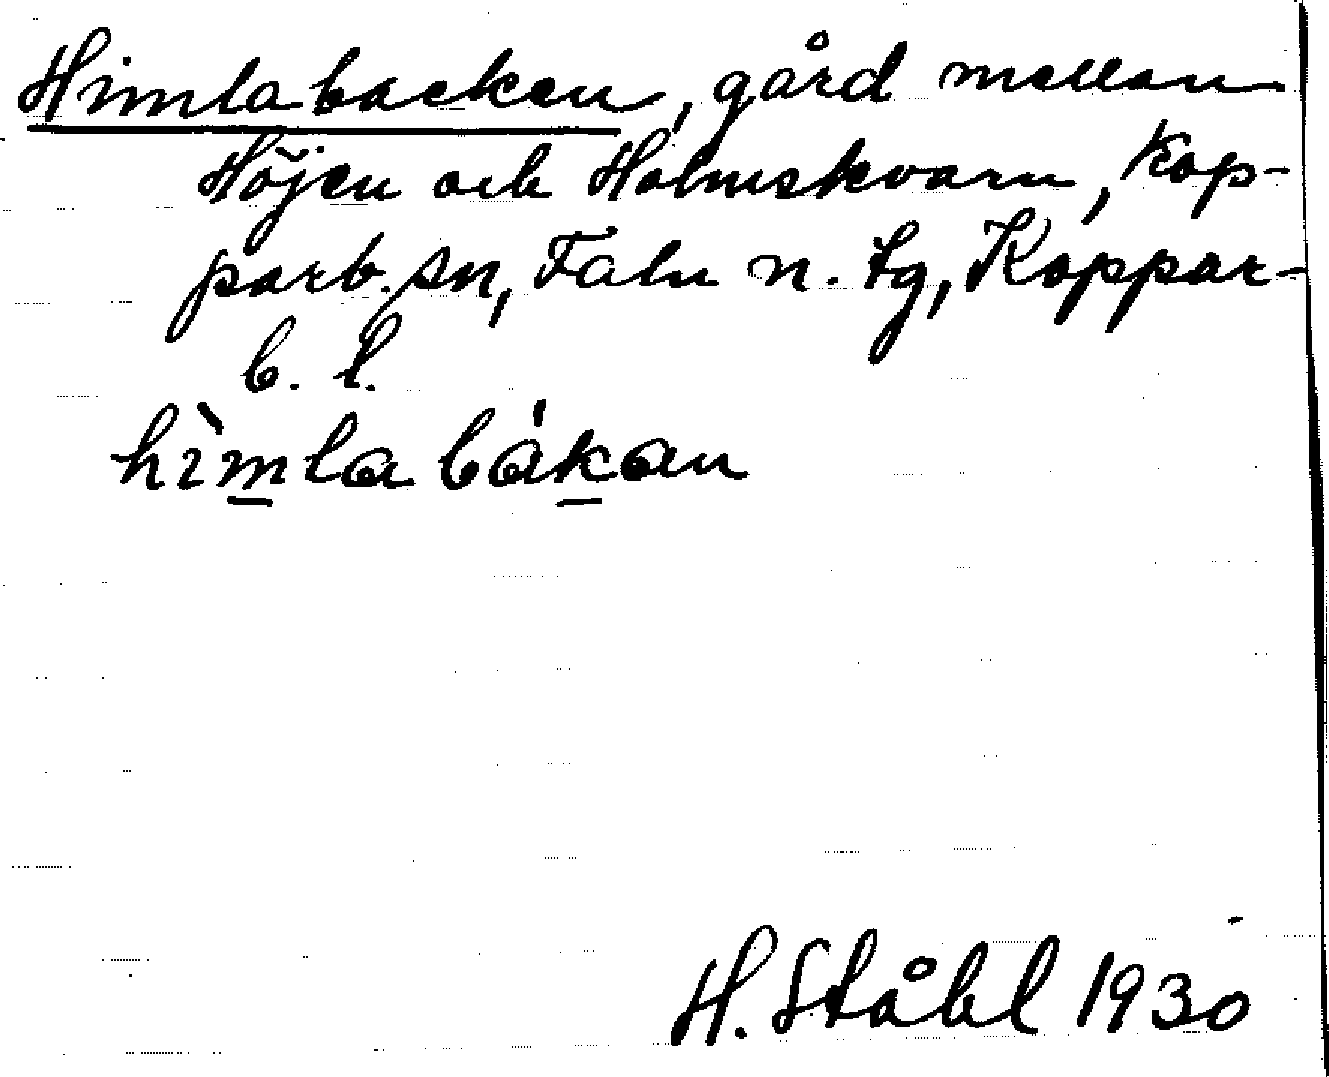 Himlabacken, gård mellan
Höjen och Holmskvarn, Kop-
parb. sn, Falu n. tg, Koppar-
b. l.
hìm̲la bák̲an
H. Ståhl 1930